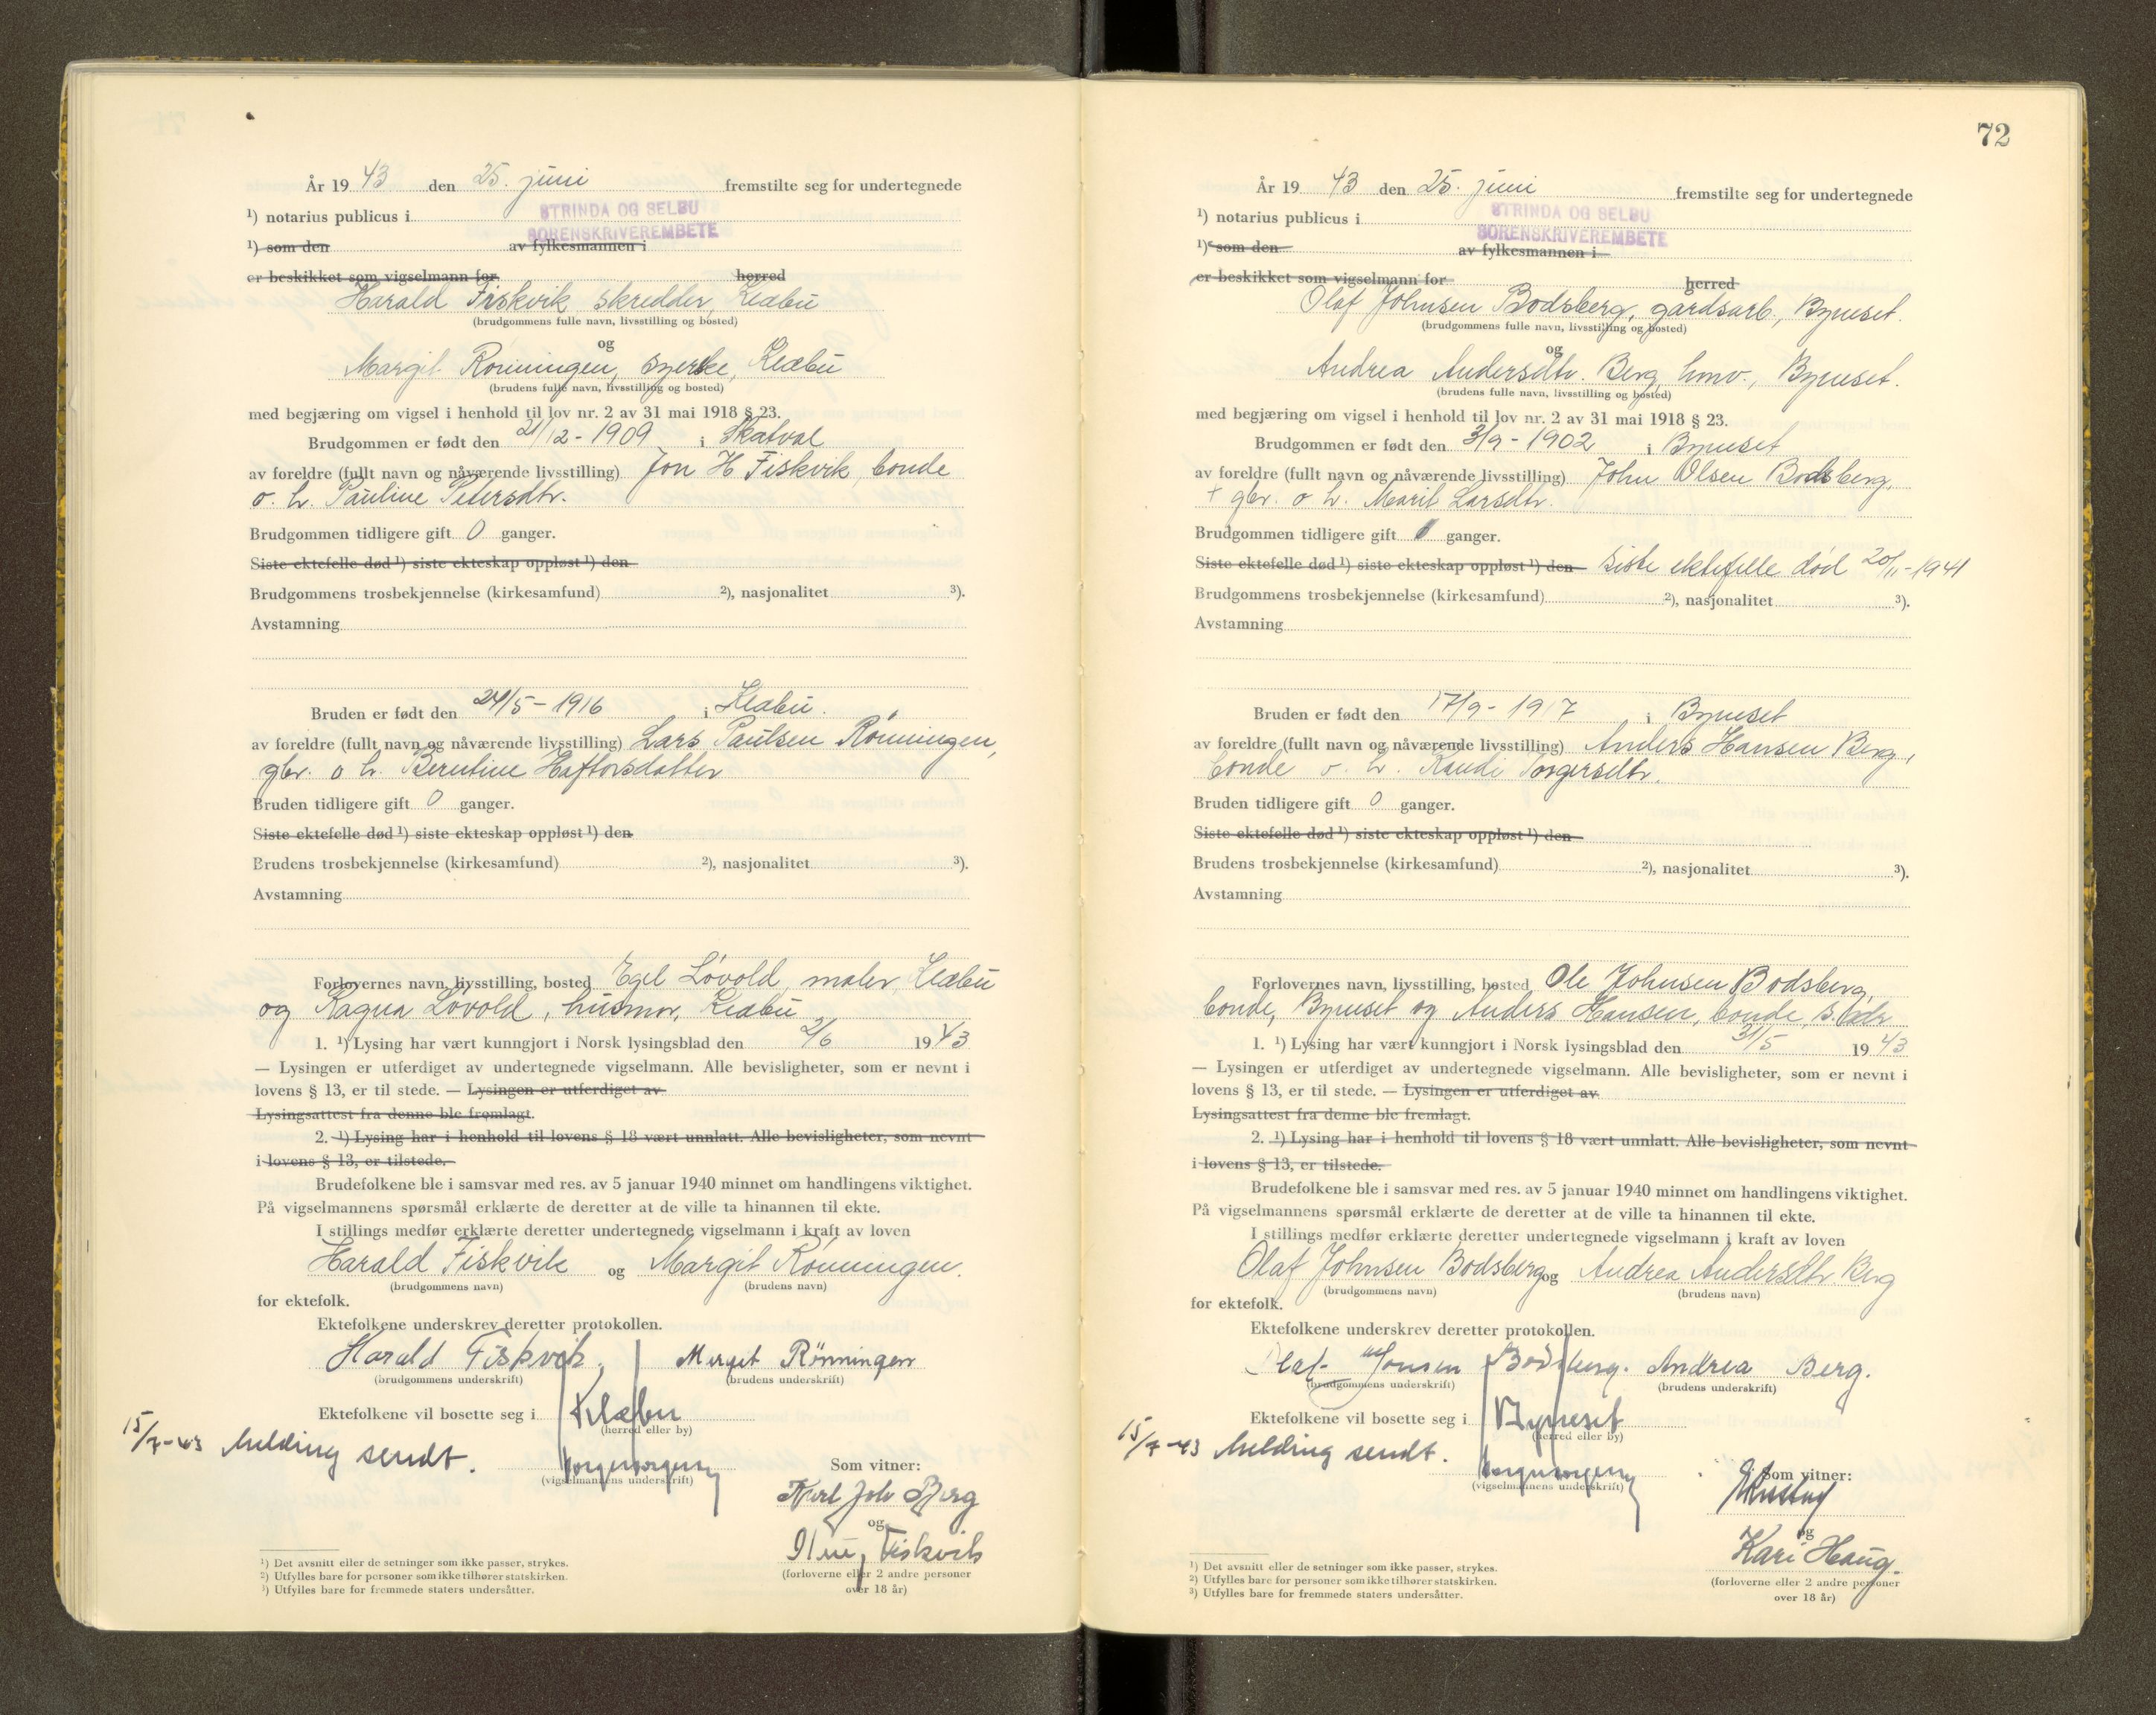 År 19 43 den 25. juni fremstilte seg for undertegnede
¹) notarius publicus i STRINDA OG SELBU
SORENSKRIVEREMBETE
¹) som den av fylkesmannen i
er beskikket som vigselmann for herred
Harald Fiskvik, skredder, Klæbu
(brudgommens fulle navn, livsstilling og bosted)
og
Margit Rönningen, syerske, Klæbu
(brudens fulle navn, livsstilling og bosted)
med begjæring om vigsel i henhold til lov nr. 2 av 31 mai 1918 § 23.
Brudgommen er født den 21/12 - 1909 i Skatval
av foreldre (fullt navn og nåværende livsstilling) Jon H Fiskvik, bonde
o. h. Pauline Petersdtr.
Brudgommen tidligere gift 0 ganger.
Siste ektefelle død ¹) siste ekteskap oppløst ¹) den
Brudgommens trosbekjennelse (kirkesamfund) ²), nasjonalitet ³).
Avstamning
Bruden er født den 24/5 - 1916 i Klæbu.
av foreldre (fullt navn og nåværende livsstilling) Lars Paulsen Rönningen,
gbr. o h. Berntine Haftorsdatter
Bruden tidligere gift 0 ganger.
Siste ektefelle død ¹) siste ekteskap oppløst ¹) den
Brudens trosbekjennelse (kirkesamfund) ²), nasjonalitet ³).
Avstamning
Forlovernes navn, livsstilling, bosted Egil Lövold, maler, Klæbu
og Ragna Lövold, husmor, Klæbu
1. ¹) Lysing har vært kunngjort i Norsk lysingsblad den 2/6 19 43
— Lysingen er utferdiget av undertegnede vigselmann. Alle bevisligheter, som er nevnt i
lovens § 13, er til stede. — Lysingen er utferdiget av
Lysingsattest fra denne ble fremlagt.
2. ¹) Lysing har i henhold til lovens § 18 vært unnlatt. Alle bevisligheter, som nevnt
i lovens § 13, er tilstede.
Brudefolkene ble i samsvar med res. av 5 januar 1940 minnet om handlingens viktighet.
På vigselmannens spørsmål erklærte de deretter at de ville ta hinannen til ekte.
I stillings medfør erklærte deretter undertegnede vigselmann i kraft av loven
Harald Fiskvik og Margit Rönningen.
(brudgommens navn) (brudens navn)
for ektefolk.
Ektefolkene underskrev deretter protokollen.
Harald Fiskvik, Margit Rönningen
(brudgommens underskrift) (brudens underskrift)
Ektefolkene vil bosette seg i Klæbu
(herred eller by)
15/7-43 Melding sendt.
(vigselmannens underskrift)
Som vitner:
Karl Joh Berg
og
Fiskvik
(forloverne eller 2 andre personer
over 18 år)
¹) Det avsnitt eller de setninger som ikke passer, strykes.
²) Utfylles bare for personer som ikke tilhører statskirken.
³) Utfylles bare for fremmede staters undersåtter.
72
År 19 43 den 25. juni fremstilte seg for undertegnede
¹) notarius publicus i STRINDA OG SELBU
SORENSKRIVEREMBETE
¹) som den av fylkesmannen i
er beskikket som vigselmann for herred
Olaf Johnsen Bodsberg, gårdsarb., Byneset.
(brudgommens fulle navn, livsstilling og bosted)
og
Andrea Andersdtr. Berg, hmv., Byneset.
(brudens fulle navn, livsstilling og bosted)
med begjæring om vigsel i henhold til lov nr. 2 av 31 mai 1918 § 23.
Brudgommen er født den 3/9 - 1902 i Byneset
av foreldre (fullt navn og nåværende livsstilling) John Olsen Bodsberg,
+ gbr. o h. Marit Larsdtr.
Brudgommen tidligere gift 1 ganger.
Siste ektefelle død ¹) siste ekteskap oppløst ¹) den siste ektefelle död 20/11-1941
Brudgommens trosbekjennelse (kirkesamfund) ²), nasjonalitet ³).
Avstamning
Bruden er født den 17/9 - 1917 i Byneset
av foreldre (fullt navn og nåværende livsstilling) Anders Hansen Berg,
bonde o. h. Randi Torgersdtr.
Bruden tidligere gift 0 ganger.
Siste ektefelle død ¹) siste ekteskap oppløst ¹) den
Brudens trosbekjennelse (kirkesamfund) ²), nasjonalitet ³).
Avstamning
Forlovernes navn, livsstilling, bosted Ole Johnsen Bodsberg,
bonde, Byneset og Anders Hansen, bonde,
1. ¹) Lysing har vært kunngjort i Norsk lysingsblad den 31/5 19 43
— Lysingen er utferdiget av undertegnede vigselmann. Alle bevisligheter, som er nevnt i
lovens § 13, er til stede. — Lysingen er utferdiget av
Lysingsattest fra denne ble fremlagt.
2. ¹) Lysing har i henhold til lovens § 18 vært unnlatt. Alle bevisligheter, som nevnt
i lovens § 13, er tilstede.
Brudefolkene ble i samsvar med res. av 5 januar 1940 minnet om handlingens viktighet.
På vigselmannens spørsmål erklærte de deretter at de ville ta hinannen til ekte.
I stillings medfør erklærte deretter undertegnede vigselmann i kraft av loven
Olaf Johnsen Bodsberg og Andrea Andersdtr. Berg
(brudgommens navn) (brudens navn)
for ektefolk.
Ektefolkene underskrev deretter protokollen.
Olaf Jonsen Bodsberg. Andrea Berg.
(brudgommens underskrift) (brudens underskrift)
Ektefolkene vil bosette seg i Byneset
(herred eller by)
15/7-43 Melding sendt.
(vigselmannens underskrift)
Som vitner:
og
Kari Haug.
(forloverne eller 2 andre personer
over 18 år)
¹) Det avsnitt eller de setninger som ikke passer, strykes.
²) Utfylles bare for personer som ikke tilhører statskirken.
³) Utfylles bare for fremmede staters undersåtter.